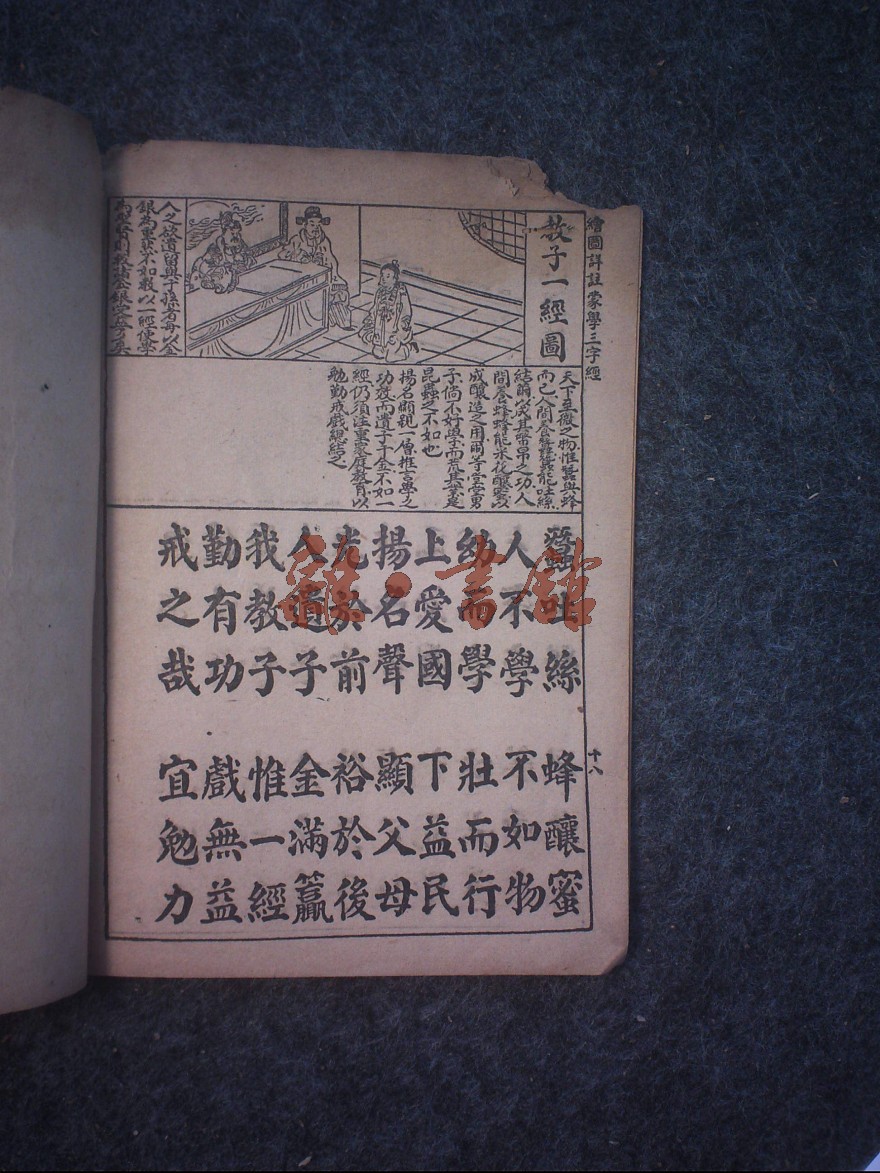 繪圖詳註蒙學三字經
十八
教子一經圖
人之欲遺留與子孫者每以金
銀為重哀不如教以一經使學
天下至微之物惟蠶與蜂
而已人間養蠶蠶能吐絲
結繭以成其幣帛之功人
間養蜂蜂能采花釀蜜以
成釀造之用爾等堂堂男
子倘不好學而荒其業是
昆蟲之不如也
揚名顯親一層推言學之
功效而遺子千金不如一
經仍須注重家庭教育以
勉勤戒戲總結之
蠶吐絲 蜂釀蜜
人不學 不如物
幼而學 壯而行
上愛國 下益民
揚名聲 顯父母
光於前 裕於後
人遺子 金滿籯
我教子 惟一經
勤有功 戲無益
戒之哉 宜勉力
雒·書館